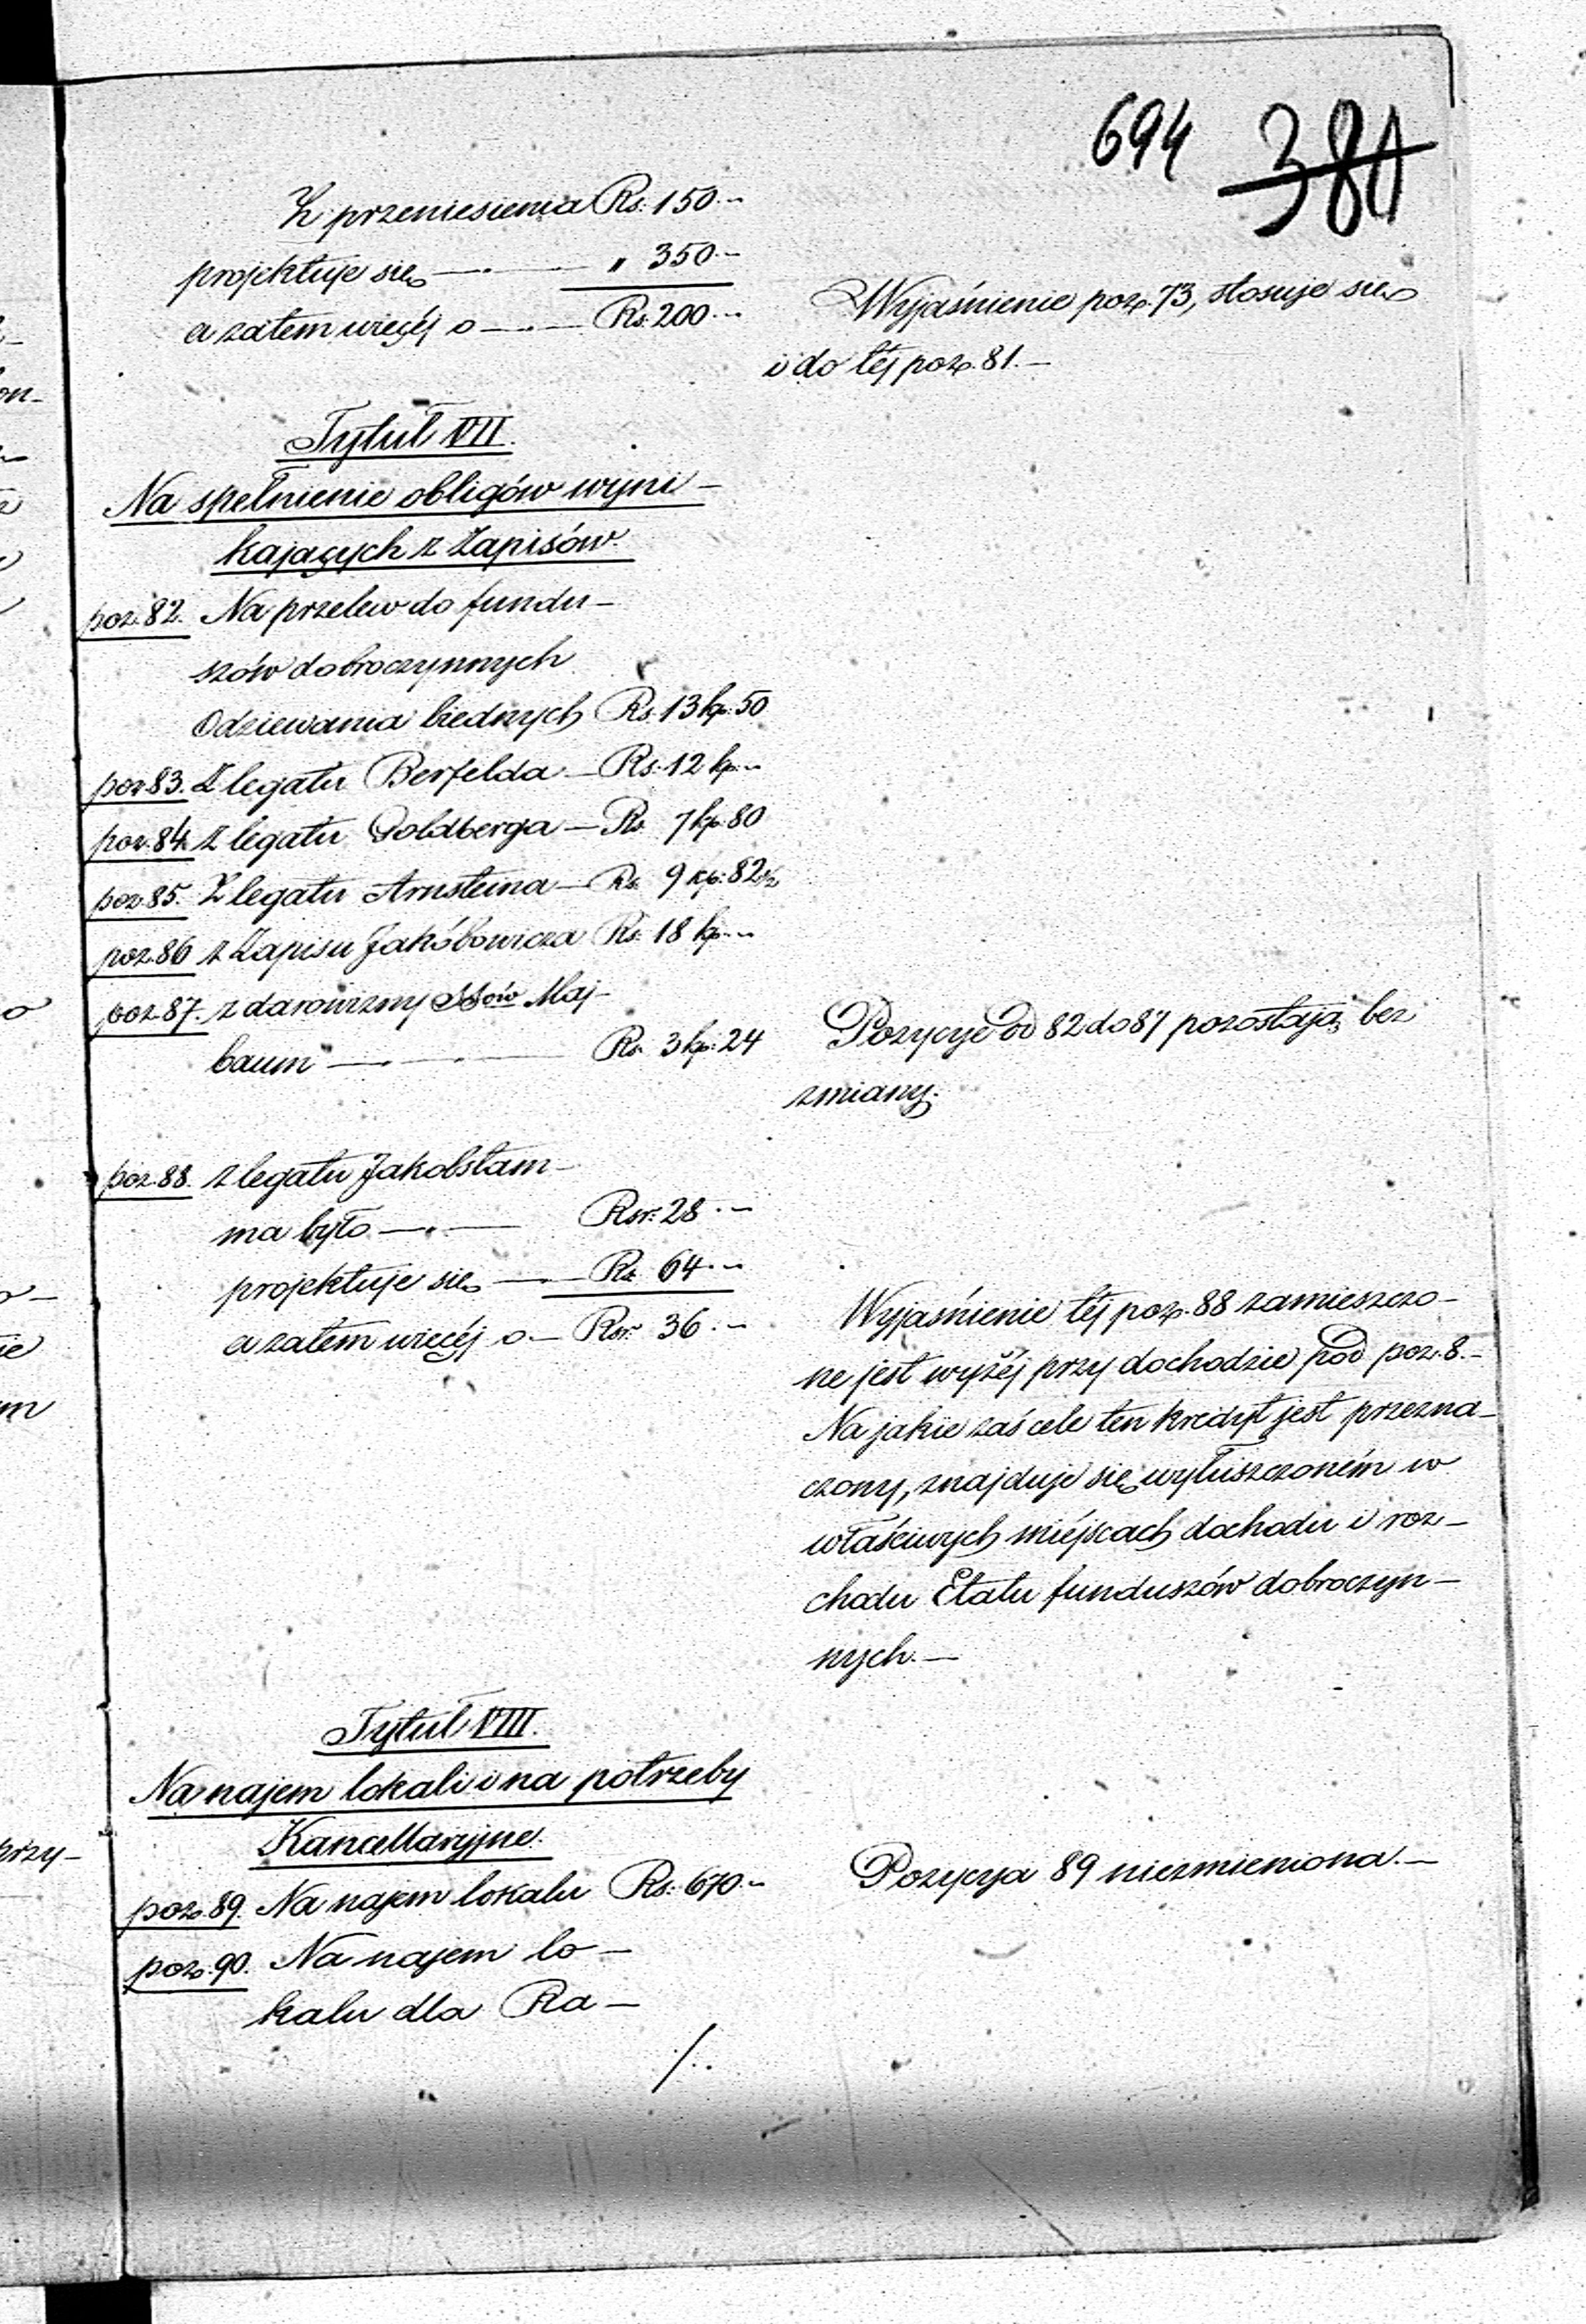 694 381
Z przeniesienia Rs. 150.–
projektuje się — . — " 350.–
a zatem więcéj o — . — Rs. 200.–
Wyjaśnienie poz. 73, stosuje się
i do téj poz. 81. –
Tytuł VII.
Na spełnienie obligów wyni-
kających z Zapisów.
poz. 82. Na przelew do fundu-
szów dobroczynnych
Odziewania biednych Rs. 13 kp. 50
poz. 83. Z legatu Berfelda — Rs. 12 kp. –
poz. 84. Z legatu Goldberga — Rs. 7 kp. 80
poz. 85. Z legatu Arnsteina — Rs. 9 kp. 82½
poz. 86 z Zapisu Jakóbowicza Rs. 18 kp. –
poz. 87. z darowizny SSów Maj-
baum — . — Rs. 3 kp. 24
Pozycye od 82 do 87 pozostają bez
zmiany.
poz. 88. z legatu Jakobstam-
ma było — . — Rsr. 28.–
projektuje się — . — Rs. 64.–
a zatem więcéj o. — Rsr. 36.–
Wyjaśnienie téj poz. 88 zamieszczo-
ne jest wyżéj przy dochodzie pod poz. 8. –
Na jakie zaś cele ten kredyt jest przezna-
czony, znajduje się wyłuszczoném w
właściwych miéjscach dochodu i roz-
chodu Etatu funduszów dobroczyn-
nych. –
Tytuł VIII.
Na najem lokali i na potrzeby
Kancellaryjne.
poz. 89. Na najem lokalu Rs. 670.–
Pozycya 89 niezmieniona. –
poz. 90. Na najem lo-
kalu dla Ra-
/..